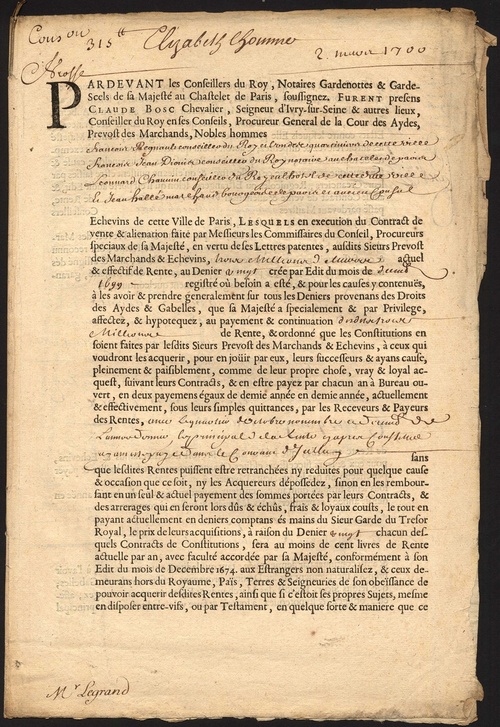 315 lt Elizabeth
2. 1700
PARDEVANT les Conseillers du Roy, Notaires Gardenottes & Garde-
Scels de sa Majesté au Chastelet de Paris, soussignez. FURENT presens
CLAUDE BOSC Chevalier, Seigneur d'Ivry-sur-Seine & autres lieux,
Conseiller du Roy en ses Conseils, Procureur General de la Cour des Aydes,
Prevost des Marchands, Nobles hommes
francois Regnault conseiller du Roy
francois Jean Dionis conseiller du Roy notaire au chatelet de paris
Leonnard Chauuin conseiller du Roy
Et Jean hallé marchand bourgeois de paris et ancien Consul
Echevins de cette Ville de Paris, LESQUELS en execution du Contract de
vente & alienation faite par Messieurs les Commissaires du Conseil, Procureurs
speciaux de sa Majesté, en vertu de ses Lettres patentes, ausdits Sieurs Prevost
des Marchands & Echevins, actuel
& effectif de Rente, au Denier vingt créé par Edit du mois de
1699 registré où besoin a esté, & pour les causes y contenuës,
à les avoir & prendre generalement sur tous les Deniers provenans des Droits
des Aydes & Gabelles, que sa Majesté a specialement & par Privilege,
affectez, & hypotequez, au payement & continuation
Millions de Rente, & ordonné que les Constitutions en
soient faites par lesdits Sieurs Prevost des Marchands & Echevins, à ceux qui
voudront les acquerir, pour en joüir par eux, leurs successeurs & ayans cause,
pleinement & paisiblement, comme de leur propre chose, vray & loyal ac-
quest, suivant leurs Contracts, & en estre payez par chacun an à Bureau ou-
vert, en deux payemens égaux de demie année en demie année, actuellement
& effectivement, sous leurs simples quittances, par les Receveurs & Payeurs
des Rentes,
sans
que lesdites Rentes puissent estre retranchées ny reduites pour quelque cause
& occasion que ce soit, ny les Acquereurs dépossedez, sinon en les rembour-
sant en un seul & actuel payement des sommes portées par leurs Contracts, &
des arrerages qui en seront lors dûs & échûs, frais & loyaux cousts, le tout en
payant actuellement en deniers comptans és mains du Sieur Garde du Tresor
Royal, le prix de leurs acquisitions, à raison du Denier vingt chacun des-
quels Contracts de Constitutions, sera au moins de cent livres de Rente
actuelle par an, avec faculté accordée par sa Majesté, conformément à son
Edit du mois de Decembre 1674. aux Estrangers non naturalisez, & ceux de-
meurans hors du Royaume, Païs, Terres & Seigneuries de son obeïssance de
pouvoir acquerir desdites Rentes, ainsi que si c'estoit ses propres Sujets, mesme
en disposer entre-vifs, ou par Testament, en quelque sorte & maniere que ce
Mr Legrand